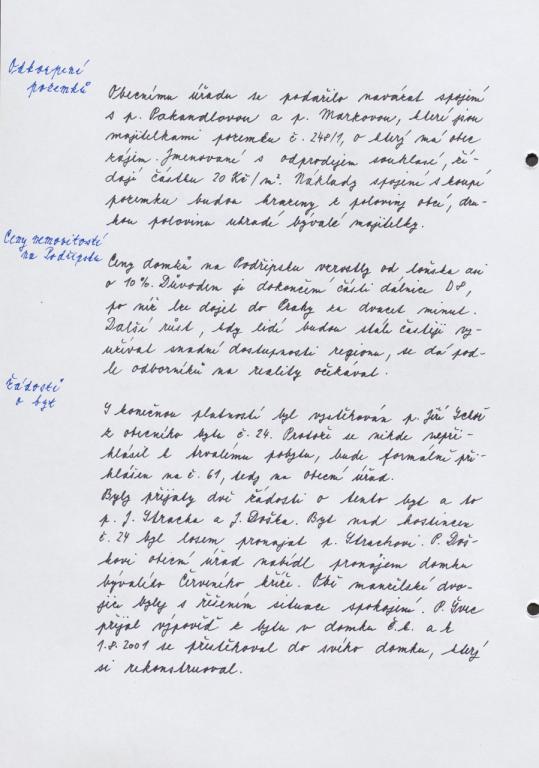 Odkoupení
pozemků
Obecnímu úřadu se podařilo navázat spojení
s p. Pakandlovou a p. Markovou, které jsou
majitelkami pozemku č. 248/1, o který má obec
zájem. Jmenované s odprodejem souhlasí, žá-
dají částku 20 Kč/m². Náklady spojení s koupí
pozemku budou hrazeny z poloviny obcí, dru-
hou polovinu uhradí bývalé majitelky.
Ceny nemovitostí
na Podřipsku
Ceny domků na Podřipsku vzrostly od loňska asi
o 10%. Důvodem je dokončení části dálnice D8,
po níž lze dojít do Prahy za dvacet minut.
Další růst, kdy lidé budou stále častěji vy-
užívat snadné dostupnosti regionu, se dá pod-
le odborníků na reality očekávat.
Žádosti
o byt
S konečnou platností byl vystěhován p. Jiří
z obecního bytu č. 24. Protože se nikde nepři-
hlásil k trvalému pobytu, bude formálně při-
hlášen na č. 61, tedy na obecní úřad.
Byly přijaty dvě žádosti o tento byt a to
p. J. Stracha a J. Doška. Byt nad hostincem
č. 24 byl losem pronajat p. Strachovi. P. Doš-
kovi obecní úřad nabídl pronájem domku
bývalého Červeného kříže. Obě manželské dvo-
jice byly s řešením situace spokojeni. P. Švec
přijal výpověď z bytu v domku Č.k. a k
1.8.2001 se přestěhoval do svého domku, který
si rekonstruoval.